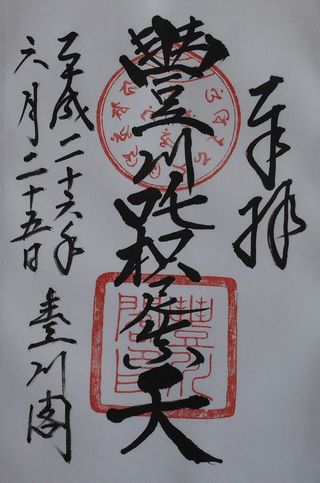 奉拝
豊川吒枳尼眞天
平成二十六年
六月二十五日
豊川閣